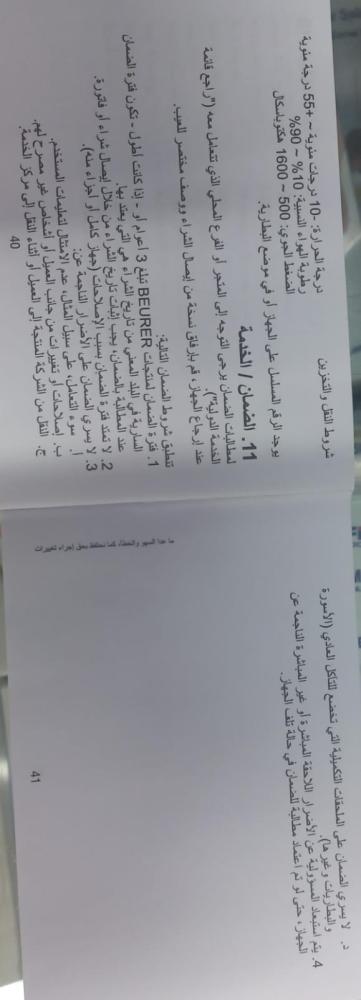 شروط النقل والتخزين
درجة الحرارة: -10 درجات مئوية ~ +55 درجة مئوية
رطوبة الهواء النسبية: 10% ~ 90%
الضغط الجوي: 500 ~ 1600 هكتوباسكال
يوجد الرقم المسلسل على الجهاز أو في موضع البطارية.
11. الضمان / الخدمة
لمطالبات الضمان يرجى التوجه إلى المتجر أو الفرع المحلي الذي تتعامل معه ("راجع قائمة
الخدمة الدولية").
عند إرجاع الجهاز، قم بإرفاق نسخة من إيصال الشراء ووصف مختصر للعيب.
تنطبق شروط الضمان التالية:
1. فترة الضمان لمنتجات BEURER تبلغ 3 أعوام أو - إذا كانت أطول - تكون فترة الضمان
السارية في البلد المعني من تاريخ الشراء هي التي يعتد بها.
عند المطالبة بالضمان، يجب إثبات تاريخ الشراء من خلال إيصال شراء أو فاتورة.
2. لا تمتد فترة الضمان بسبب الإصلاحات (جهاز كامل أو أجزاء منه).
3. لا يسري الضمان على الأضرار الناجمة عن:
أ. سوء التعامل، على سبيل المثال، عدم الامتثال لتعليمات المستخدم.
ب. إصلاحات أو تغييرات من جانب العميل أو أشخاص غير مصرح لهم.
ج. النقل من الشركة المنتجة إلى العميل أو أثناء النقل إلى مركز الخدمة.
40
د. لا يسري الضمان على الملحقات التكميلية التي تخضع للتآكل العادي (الأسورة
والبطاريات وغيرها).
4. يتم استبعاد المسؤولية عن الأضرار اللاحقة المباشرة أو غير المباشرة الناجمة عن
الجهاز، حتى لو تم اعتماد مطالبة للضمان في حالة تلف الجهاز.
ما عدا السهو والخطأ، كما نحتفظ بحق إجراء تغييرات
41